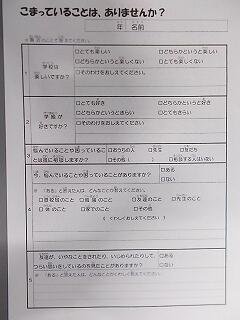 こまっていることは、ありませんか？
年 名前
1
学校は
楽しいですか？
□とても楽しい □どちらかというと楽しい
□どちらかというと楽しくない □とても楽しくない
□そのわけをおしえてください。
2
学級が
好きですか？
□とても好き □どちらかというと好き
□どちらかというときらい □とてもきらい
□そのわけをおしえてください。
3
悩んでいることや困っているこ
とは誰に相談しますか？
□おうちの人 □先生 □友だち
□その他（ ） □相談する人はいない
4
今、悩んでいることや困っていることがありますか？
□ある
□ない
※「ある」と答えた人は、どんなことで悩んでいますか？
□勉強のこと □友達のこと □先生のこと
□体のこと □家でのこと □その他
（ くわしくおしえてください ）
5
友達が、いやなことをされたり、いじめられたりして、
つらい思いをしているのを見たことがありますか？
□ある
□ない
※「ある」と答えた人は、どんなことかくわしく教えてください。